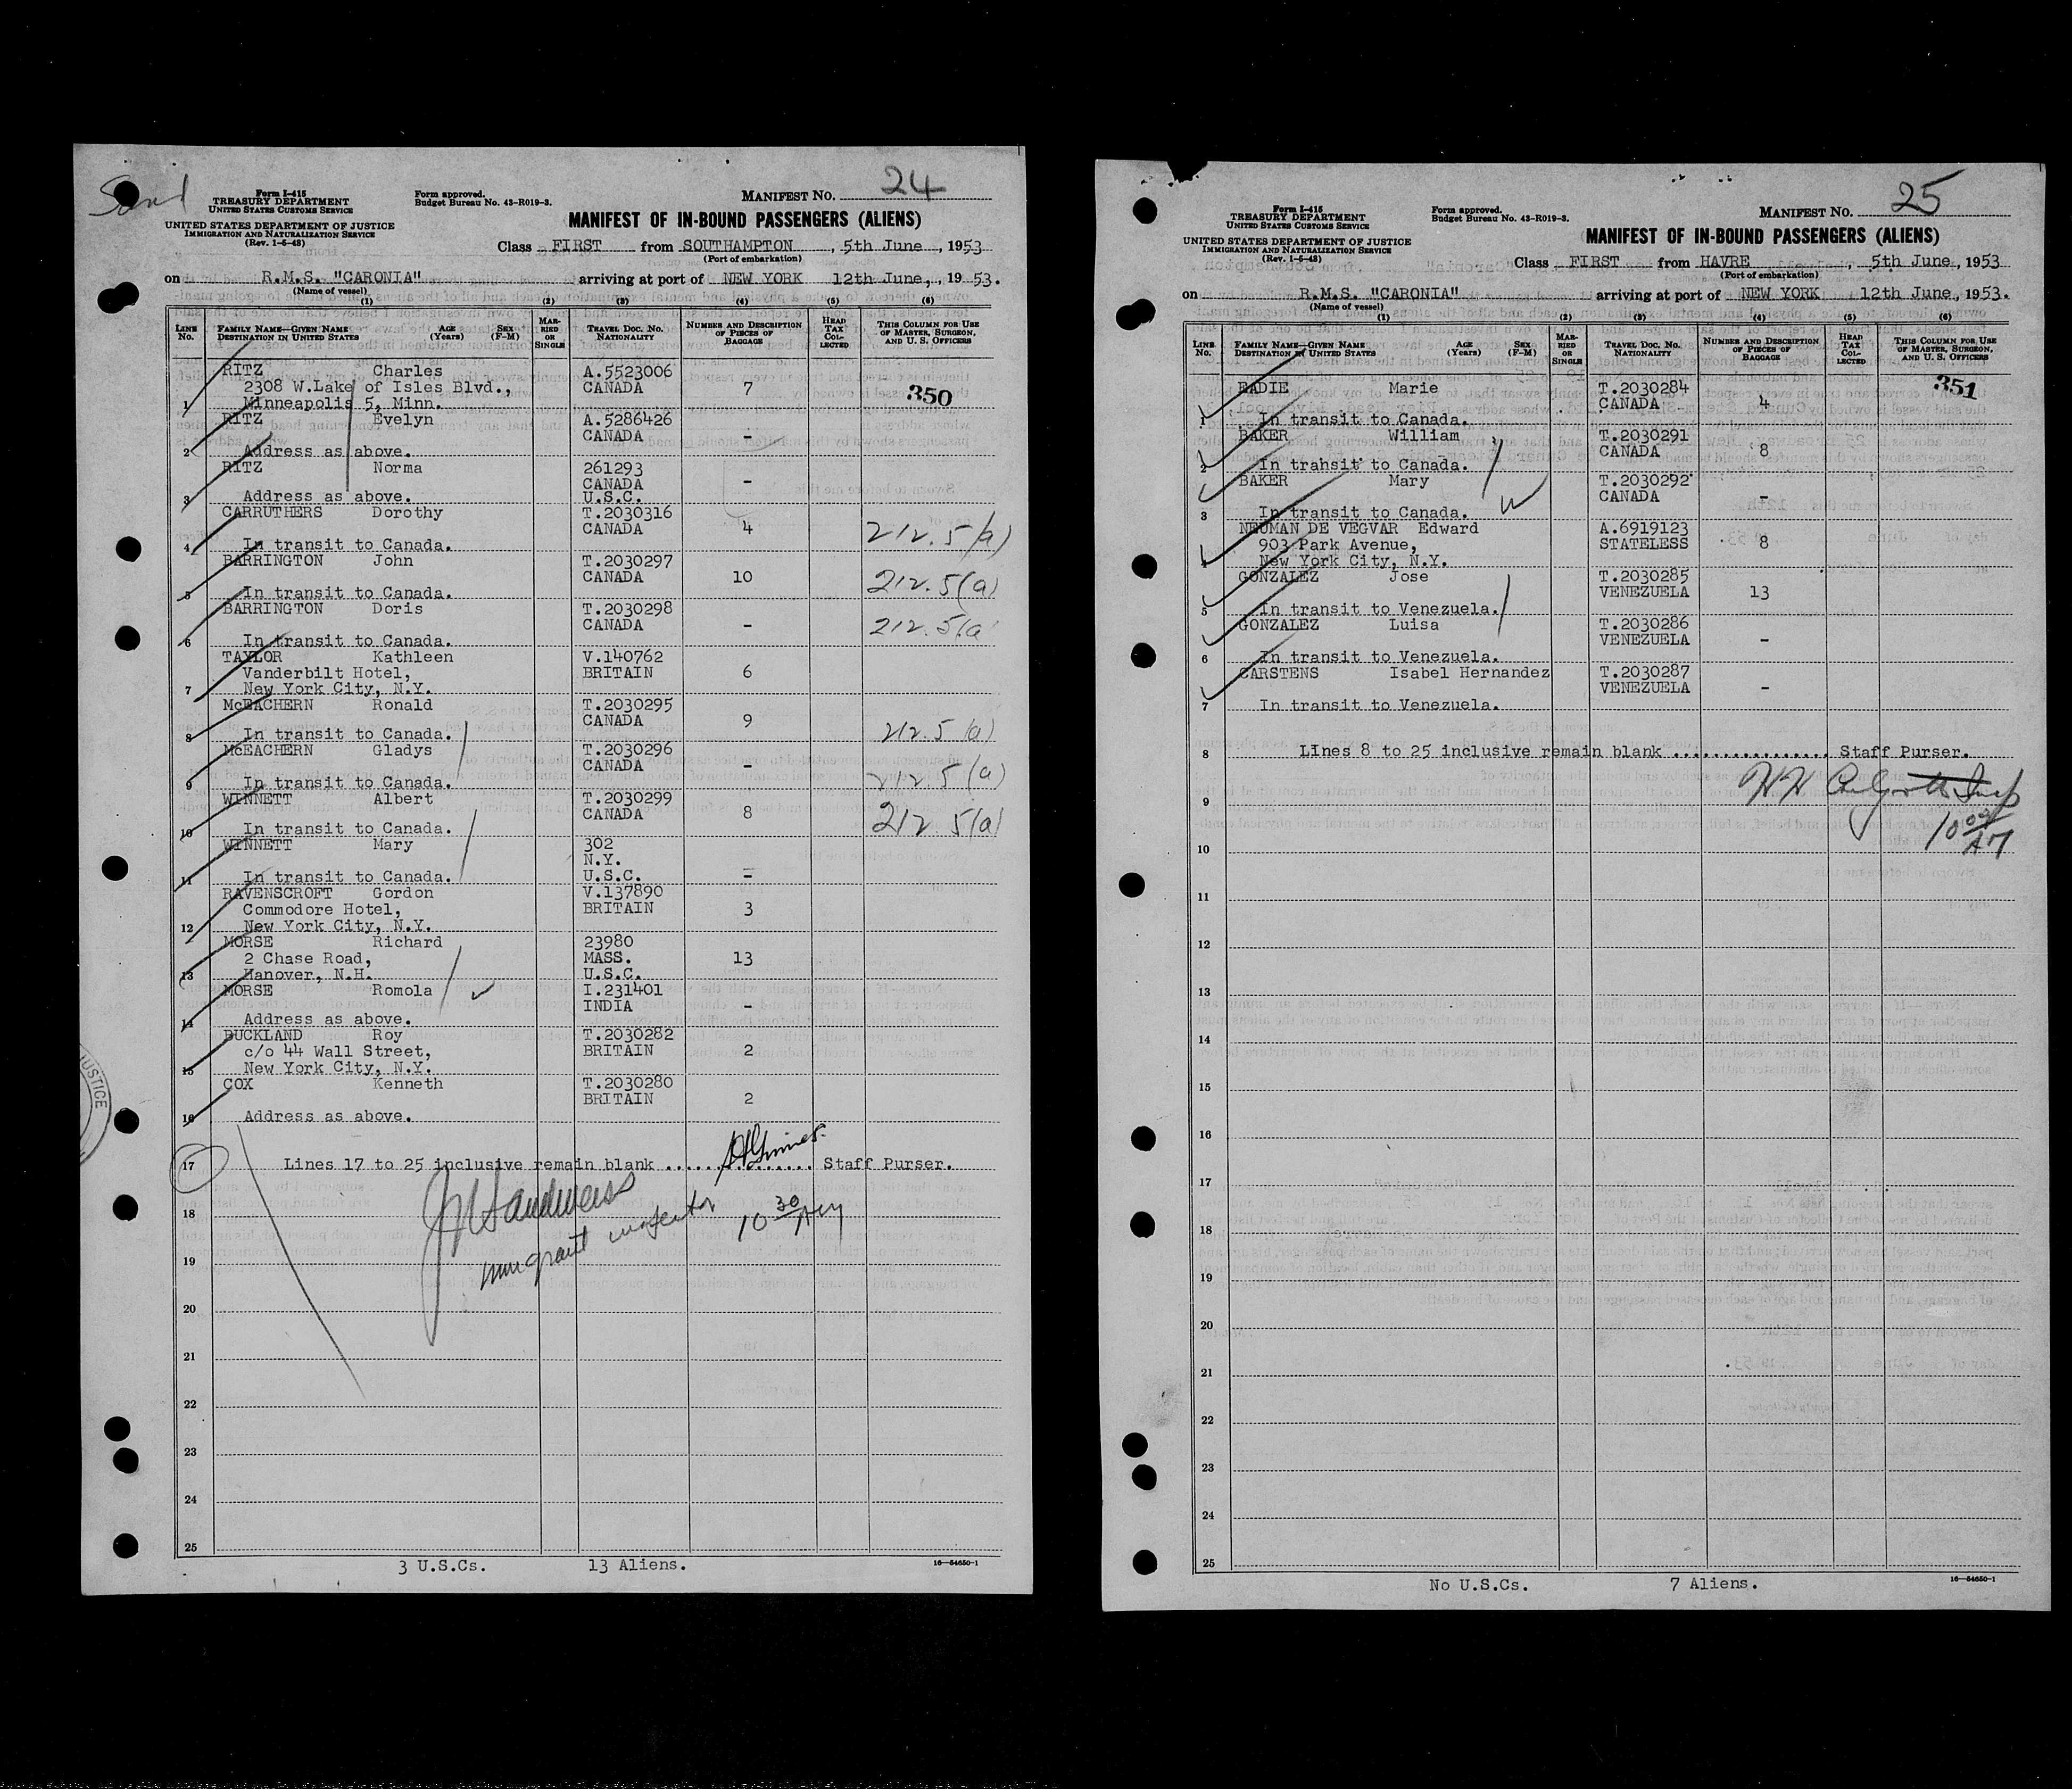 Form I-415
TREASURY DEPARTMENT
UNITED STATES CUSTOMS SERVICE
UNITED STATES DEPARTMENT OF JUSTICE
IMMIGRATION AND NATURALIZATION SERVICE
(Rev. 1-6-48)
Form approved.
Budget Bureau No. 43-R019-3.
MANIFEST No. 24
MANIFEST OF IN-BOUND PASSENGERS (ALIENS)
Class FIRST from SOUTHAMPTON, 5th June, 1953
(Port of embarkation)
on R.M.S. "CARONIA" arriving at port of NEW YORK 12th June, 1953.
(Name of vessel)
(1) (2) (3) (4) (5) (6)
LINE No. FAMILY NAME—GIVEN NAME DESTINATION IN UNITED STATES AGE (Years) SEX (F-M) MARRIED OR SINGLE TRAVEL DOC. NO. NATIONALITY NUMBER AND DESCRIPTION OF PIECES OF BAGGAGE HEAD TAX COLLECTED THIS COLUMN FOR USE OF MASTER, SURGEON, AND U. S. OFFICERS
RITZ Charles A.5523006
2308 W.Lake of Isles Blvd., CANADA 7 350
1 Minneapolis 5, Minn.
RITZ Evelyn A.5286426
CANADA -
2 Address as above.
RITZ Norma 261293
CANADA -
3 Address as above. U.S.C.
CARRUTHERS Dorothy T.2030316
CANADA 4 212.5(a)
4 In transit to Canada.
BARRINGTON John T.2030297
CANADA 10 212.5(a)
5 In transit to Canada.
BARRINGTON Doris T.2030298
CANADA - 212.5(a
6 In transit to Canada.
TAYLOR Kathleen V.140762
Vanderbilt Hotel, BRITAIN 6
7 New York City, N.Y.
McEACHERN Ronald T.2030295
CANADA 9 212.5(a)
8 In transit to Canada.
McEACHERN Gladys T.2030296
CANADA - 212.5(a)
9 In transit to Canada.
WINNETT Albert T.2030299
CANADA 8 212.5(a)
10 In transit to Canada.
WINNETT Mary 302
N.Y.
11 In transit to Canada. U.S.C. -
RAVENSCROFT Gordon V.137890
Commodore Hotel, BRITAIN 3
12 New York City, N.Y.
MORSE Richard 23980
2 Chase Road, MASS. 13
13 Hanover, N.H. U.S.C.
MORSE Romola I.231401
INDIA -
14 Address as above.
BUCKLAND Roy T.2030282
c/o 44 Wall Street, BRITAIN 2
15 New York City, N.Y.
COX Kenneth T.2030280
BRITAIN 2
16 Address as above.
17 Lines 17 to 25 inclusive remain blank ............... Staff Purser.
18 10 30 AM
19
20
21
22
23
24
25
3 U.S.Cs. 13 Aliens. 16—54650-1
USTICE
Form I-415
TREASURY DEPARTMENT
UNITED STATES CUSTOMS SERVICE
UNITED STATES DEPARTMENT OF JUSTICE
IMMIGRATION AND NATURALIZATION SERVICE
(Rev. 1-6-48)
Form approved.
Budget Bureau No. 43-R019-3.
MANIFEST No. 25
MANIFEST OF IN-BOUND PASSENGERS (ALIENS)
Class FIRST from HAVRE, 5th June, 1953
(Port of embarkation)
on R.M.S. "CARONIA" arriving at port of NEW YORK 12th June, 1953.
(Name of vessel)
(1) (2) (3) (4) (5) (6)
LINE No. FAMILY NAME—GIVEN NAME DESTINATION IN UNITED STATES AGE (Years) SEX (F-M) MARRIED OR SINGLE TRAVEL DOC. NO. NATIONALITY NUMBER AND DESCRIPTION OF PIECES OF BAGGAGE HEAD TAX COLLECTED THIS COLUMN FOR USE OF MASTER, SURGEON, AND U. S. OFFICERS
EADIE Marie T.2030284 351
CANADA 4
1 In transit to Canada.
BAKER William T.2030291
CANADA 8
2 In transit to Canada.
BAKER Mary T.2030292
CANADA -
3 In transit to Canada.
NEUMAN DE VEGVAR Edward A.6919123
903 Park Avenue, STATELESS 8
4 New York City, N.Y.
GONZALEZ Jose T.2030285
VENEZUELA 13
5 In transit to Venezuela.
GONZALEZ Luisa T.2030286
VENEZUELA -
6 In transit to Venezuela.
CARSTENS Isabel Hernandez T.2030287
VENEZUELA -
7 In transit to Venezuela.
8 LInes 8 to 25 inclusive remain blank ................ Staff Purser.
9
10
11
12
13
14
15
16
17
18
19
20
21
22
23
24
25
No U.S.Cs. 7 Aliens. 16—54650-1